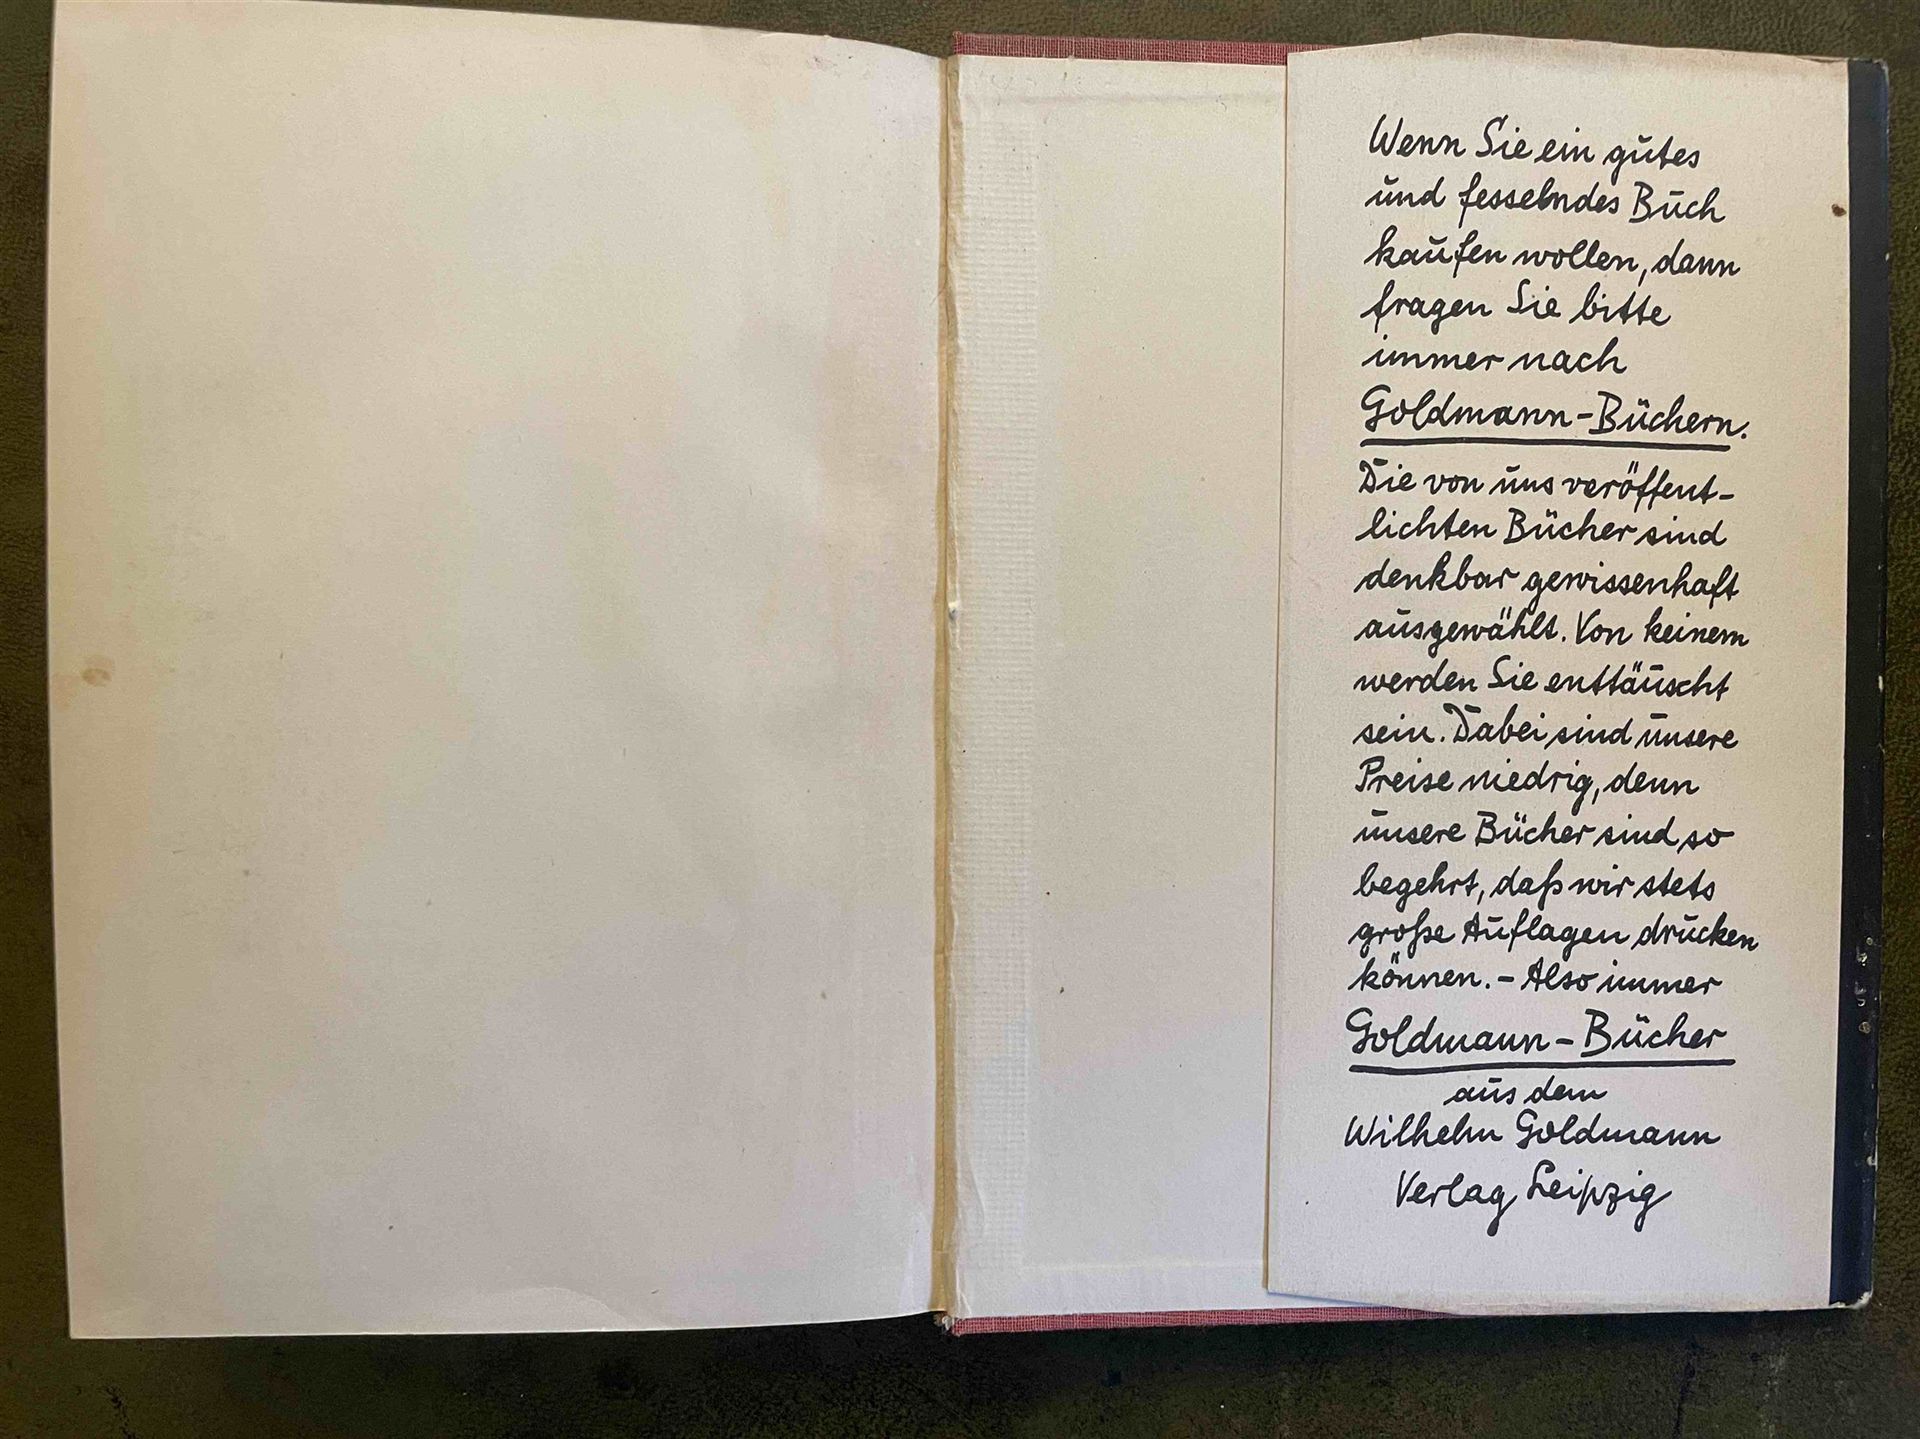 Wenn Sie ein gutes
und fesselndes Buch
kaufen wollen, dann
fragen Sie bitte
immer nach
Goldmann-Büchern.
Die von uns veröffent-
lichten Bücher sind
denkbar gewissenhaft
ausgewählt. Von keinem
werden Sie enttäuscht
sein. Dabei sind unsere
Preise niedrig, denn
unsere Bücher sind so
begehrt, daß wir stets
große Auflagen drucken
können. - Also immer
Goldmann-Bücher
aus dem
Wilhelm Goldmann
Verlag Leipzig